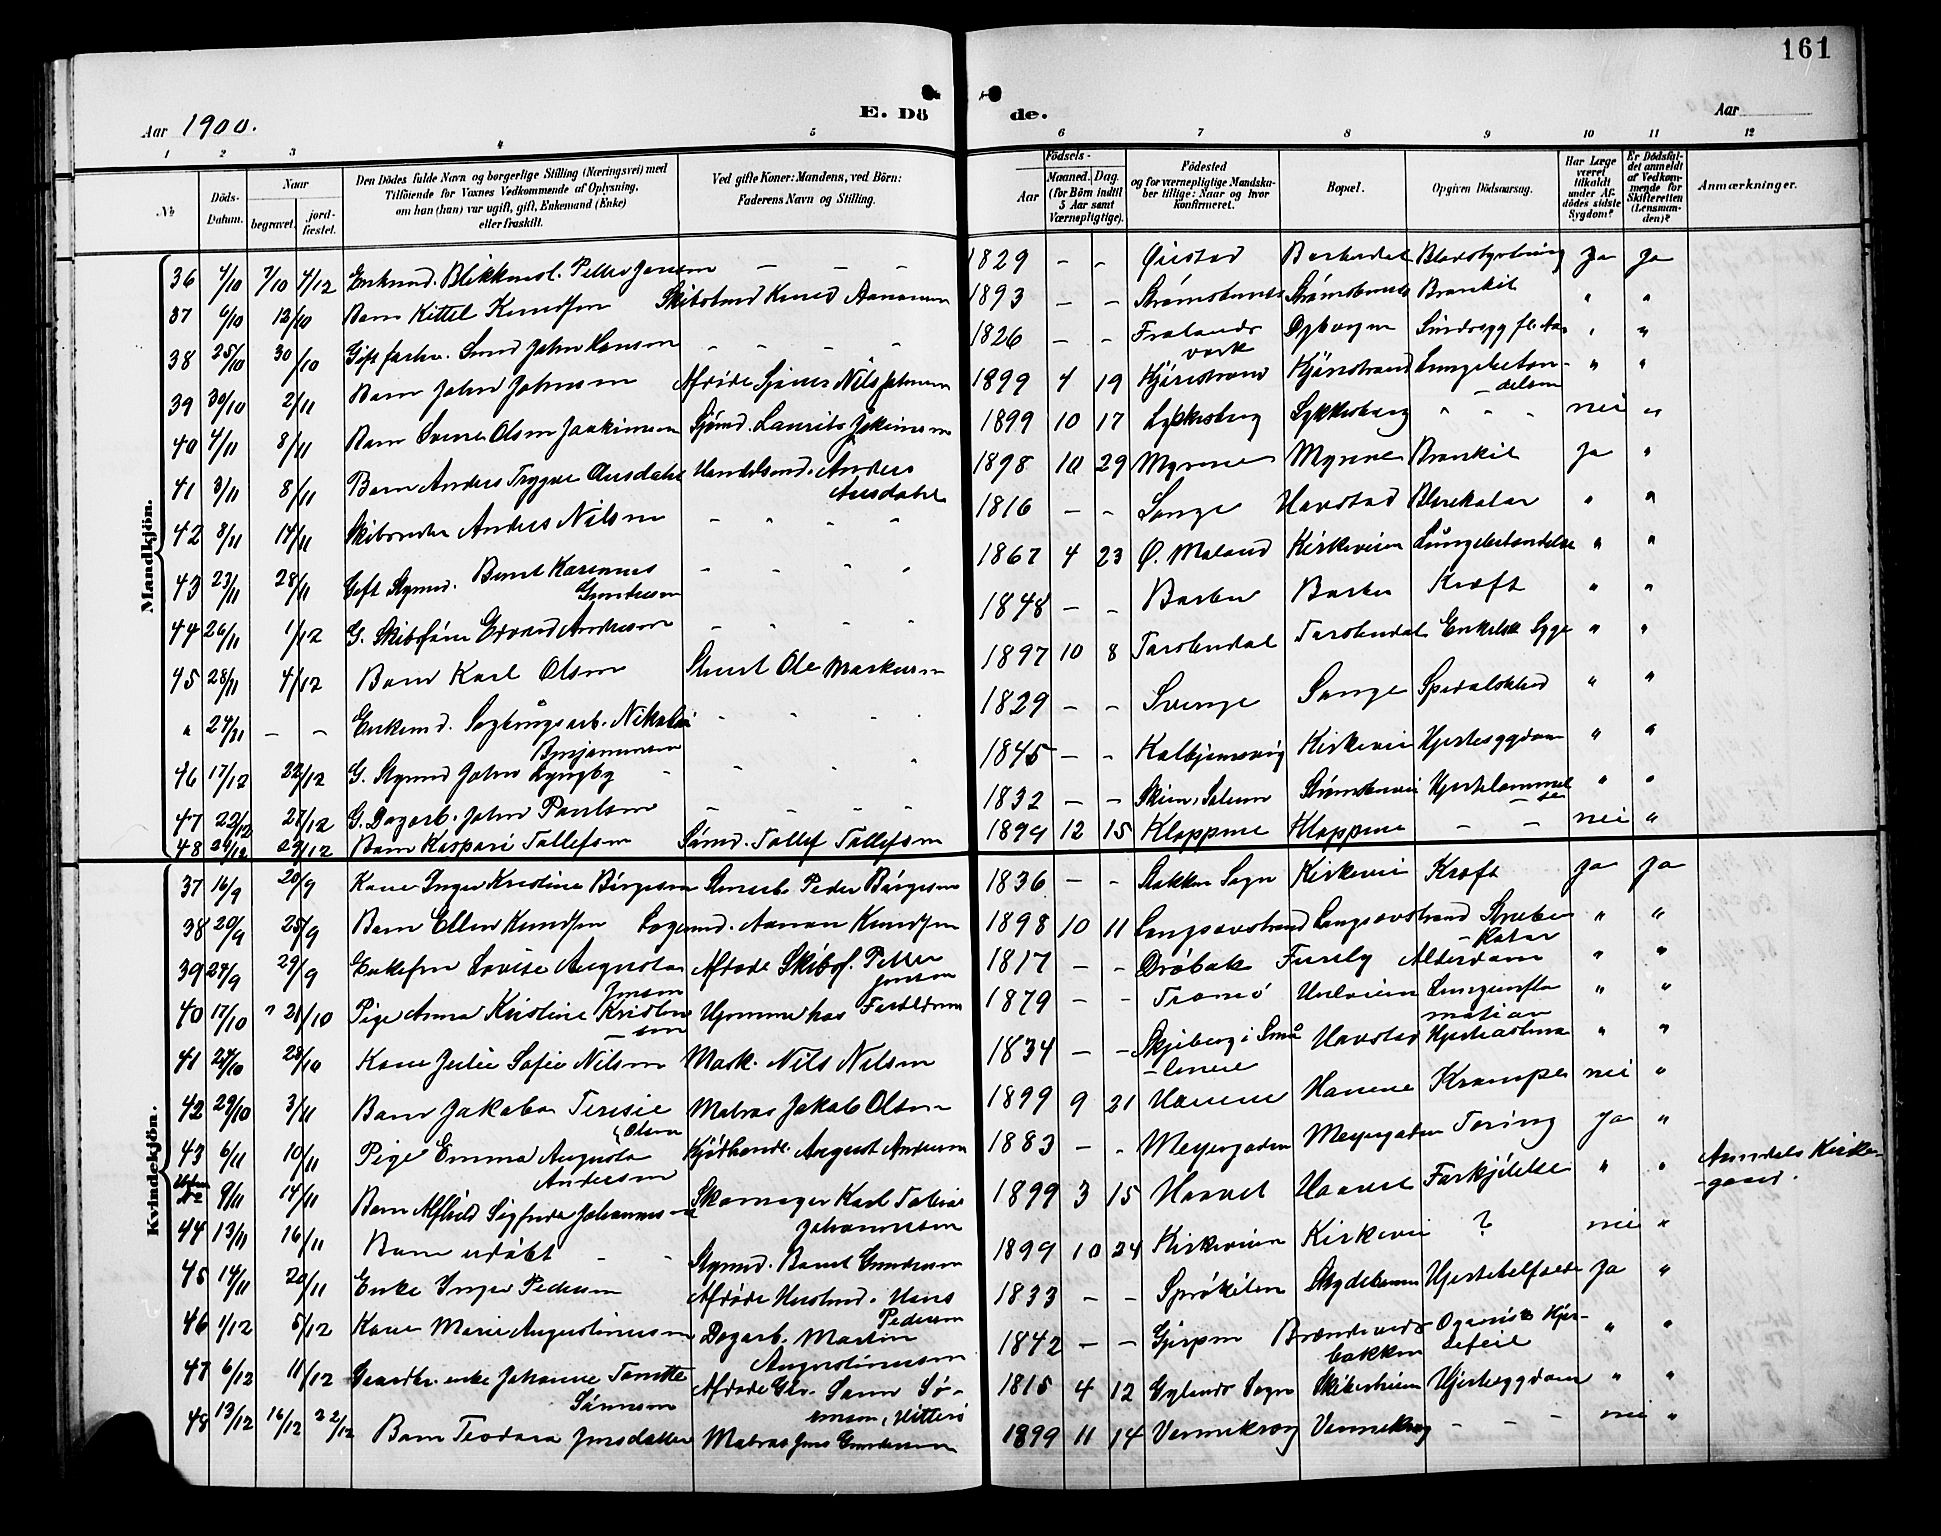 161
Aar 1900.
E. Dö de.
Aar
1 2 3 4 5 6 7 8 9 10 11 12
№
Döds-Datum.
Naar
begravet.
jord-fæstet.
Den Dödes fulde Navn og borgerlige Stilling (Næringsvei) med
Tilföiende for Voxnes Vedkommende af Oplysning,
om han (hun) var ugift, gift, Enkemand (Enke)
eller fraskilt.
Ved gifte Koner: Mandens, ved Börn:
Faderens Navn og Stilling.
Födsels-
Aar
Maaned. Dag.
(for Börn indtil
5 Aar samt
Værnepligtige).
Födested
og for værnepligtige Mandska-
ber tillige: Naar og hvor
konfirmeret.
Bopæl.
Opgiven Dödsaarsag.
Har Læge
været
tilkaldt
under Af-
dödes sidste
Sygdom?
Er Dödsfal-
det anmeldt
af Vedkom-
mende for
Skifteretten
(Lensman-
den)?
Anmærkninger.
Mandkjön.
36 4/10 7/10 4/12 Enkemd. Blikkensl. Petter Jensen - - - 1829 - - Øiestad Barbudal Blodstyrtning Ja Ja
37 6/10 12/10 Barn Kittel Knudsen Skibstømd Knud Aanonsen 1893 - - Strømsbunes Strømsbunes Bronkit " "
38 25/10 30/10 Gift forhv. Smed John Hansen - - - - 1826 - - Frolands værk Dybvogen " "
39 30/10 2/11 Barn John Johnsen Afdøde Sjømd Nils Johnsen 1899 4 19 Kjønstrand Kjønstrand Lungebetændelse " "
40 4/11 8/11 Barn Sverre Olsen Joakimsen Sjømd. Laurits Jokimsen 1899 10 17 Lykkesborg Lykkesborg " - - nei "
41 3/11 8/11 Barn Anders Trygve Ausdahl Handelsmd. Anders Ausdahl 1898 10 29 Myrene Myrene Bronkit Ja "
42 8/11 14/11 Skibsreder Anders Nilsen - " " " 1816 - - Songe Havstad Blærekatar " "
43 23/11 28/11 Gift Styrmd. Bernt Karenius Gundersen - " " " 1867 4 23 Ø. Moland Kirkeveien Lungebetændelse " "
44 26/11 1/12 G. Skibsfører Edvard Andersen - - " " 1848 - - Barbu Barbu Kræft " "
45 28/11 4/12 Barn Karl Olsen Stuert Ole Markusen 1897 10 8 Torsbudal Torsbudal Engelsk Syge " "
" 24/11 - - Enkemd. Sagbrugsarb. Nikolai Benjaminsen - " " " 1829 - - Songe Spedalskhed " "
46 17/12 22/12 G. Styrmd John Lyngby - " " " 1845 - - Kolbjørnsvig Kirkeveien Hjertesygdom " "
47 22/12 27/12 G. Dagarb. John Paulsen - - " " 1832 - - Skien, Solum Strømsbuvei Hjertelammelse " "
48 24/12 27/12 Barn Kaspari Tollefsen Sømd. Tollef Tollefsen 1899 12 15 Kloppene Kloppene - - nei "
Kvindekjön.
37 16/9 20/9 Kone Inger Kristine Børgesen Stenarb. Peder Børgesen 1836 - - Stokken Sogn Kirkevei Kræft Ja Ja
38 20/9 25/9 Barn Ellen Knudsen Aanon Knudsen 1898 10 11 Langsævstrand Langsævstrand Strubekatar " "
39 24/9 29/9 Enkefru Lovise Augusta Jensen Afdøde Skibsf. Petter Jensen 1817 - - Drøbak Furuly Alderdom " "
40 17/10 " 21/10 Pige Anna Kristine Kristensen Hjemme hos Forældrene 1879 - - Tromø Lungeinflamation " "
41 24/10 28/10 Kone Julie Sofie Nilsen Mask. Nils Nilsen 1834 - - Skjeberg i Smålenene Havstad Hjerteastma " "
42 29/10 3/11 Barn Jakoba Teresie Olsen Matros Jakob Olsen 1899 9 21 Hanene Hanene Krampe nei "
43 6/11 10/11 Pige Emma Augusta Andersen Kjøthandl. August Andersen 1883 - - Meyergaden Meyergaden Tæring Ja "
9/11 14/11 Barn Alfhild Sigfrida Johannesen Skomager Karl Tobias Johannesen 1899 3 15 Haavet Haavet Forkjølelse " " Arendals Kirkegaard.
44 13/11 16/11 Barn udøbt - - Styrmd. Bernt Gundersen 1899 10 24 Kirkeveien Kirkevei ? nei "
45 14/11 20/11 Enke Inger Pedersen Afdøde Husmd. Hans Pedersen 1833 - - Sprøkilen Skydebanen Hjertebelfeldt Ja "
46 1/12 5/12 Kone Marie Augustinusen Dagarb. Martin Augustinusen 1842 - - Gjerpen Brændevinsbakken Organisk Hjertefeil " "
47 6/12 11/12 Gaardbr. enke Johanne Tomette Sørensen Afdøde Gbr. Sørensen, Hitterø 1815 4 12 Gylands Sogn Skibsheien Hjertesygdom " "
48 13/12 16/12 22/12 Barn Teodora Jensdatter Matros Jens Gundersen 1899 11 14 Vennekrog Vennekrog - - - nei "